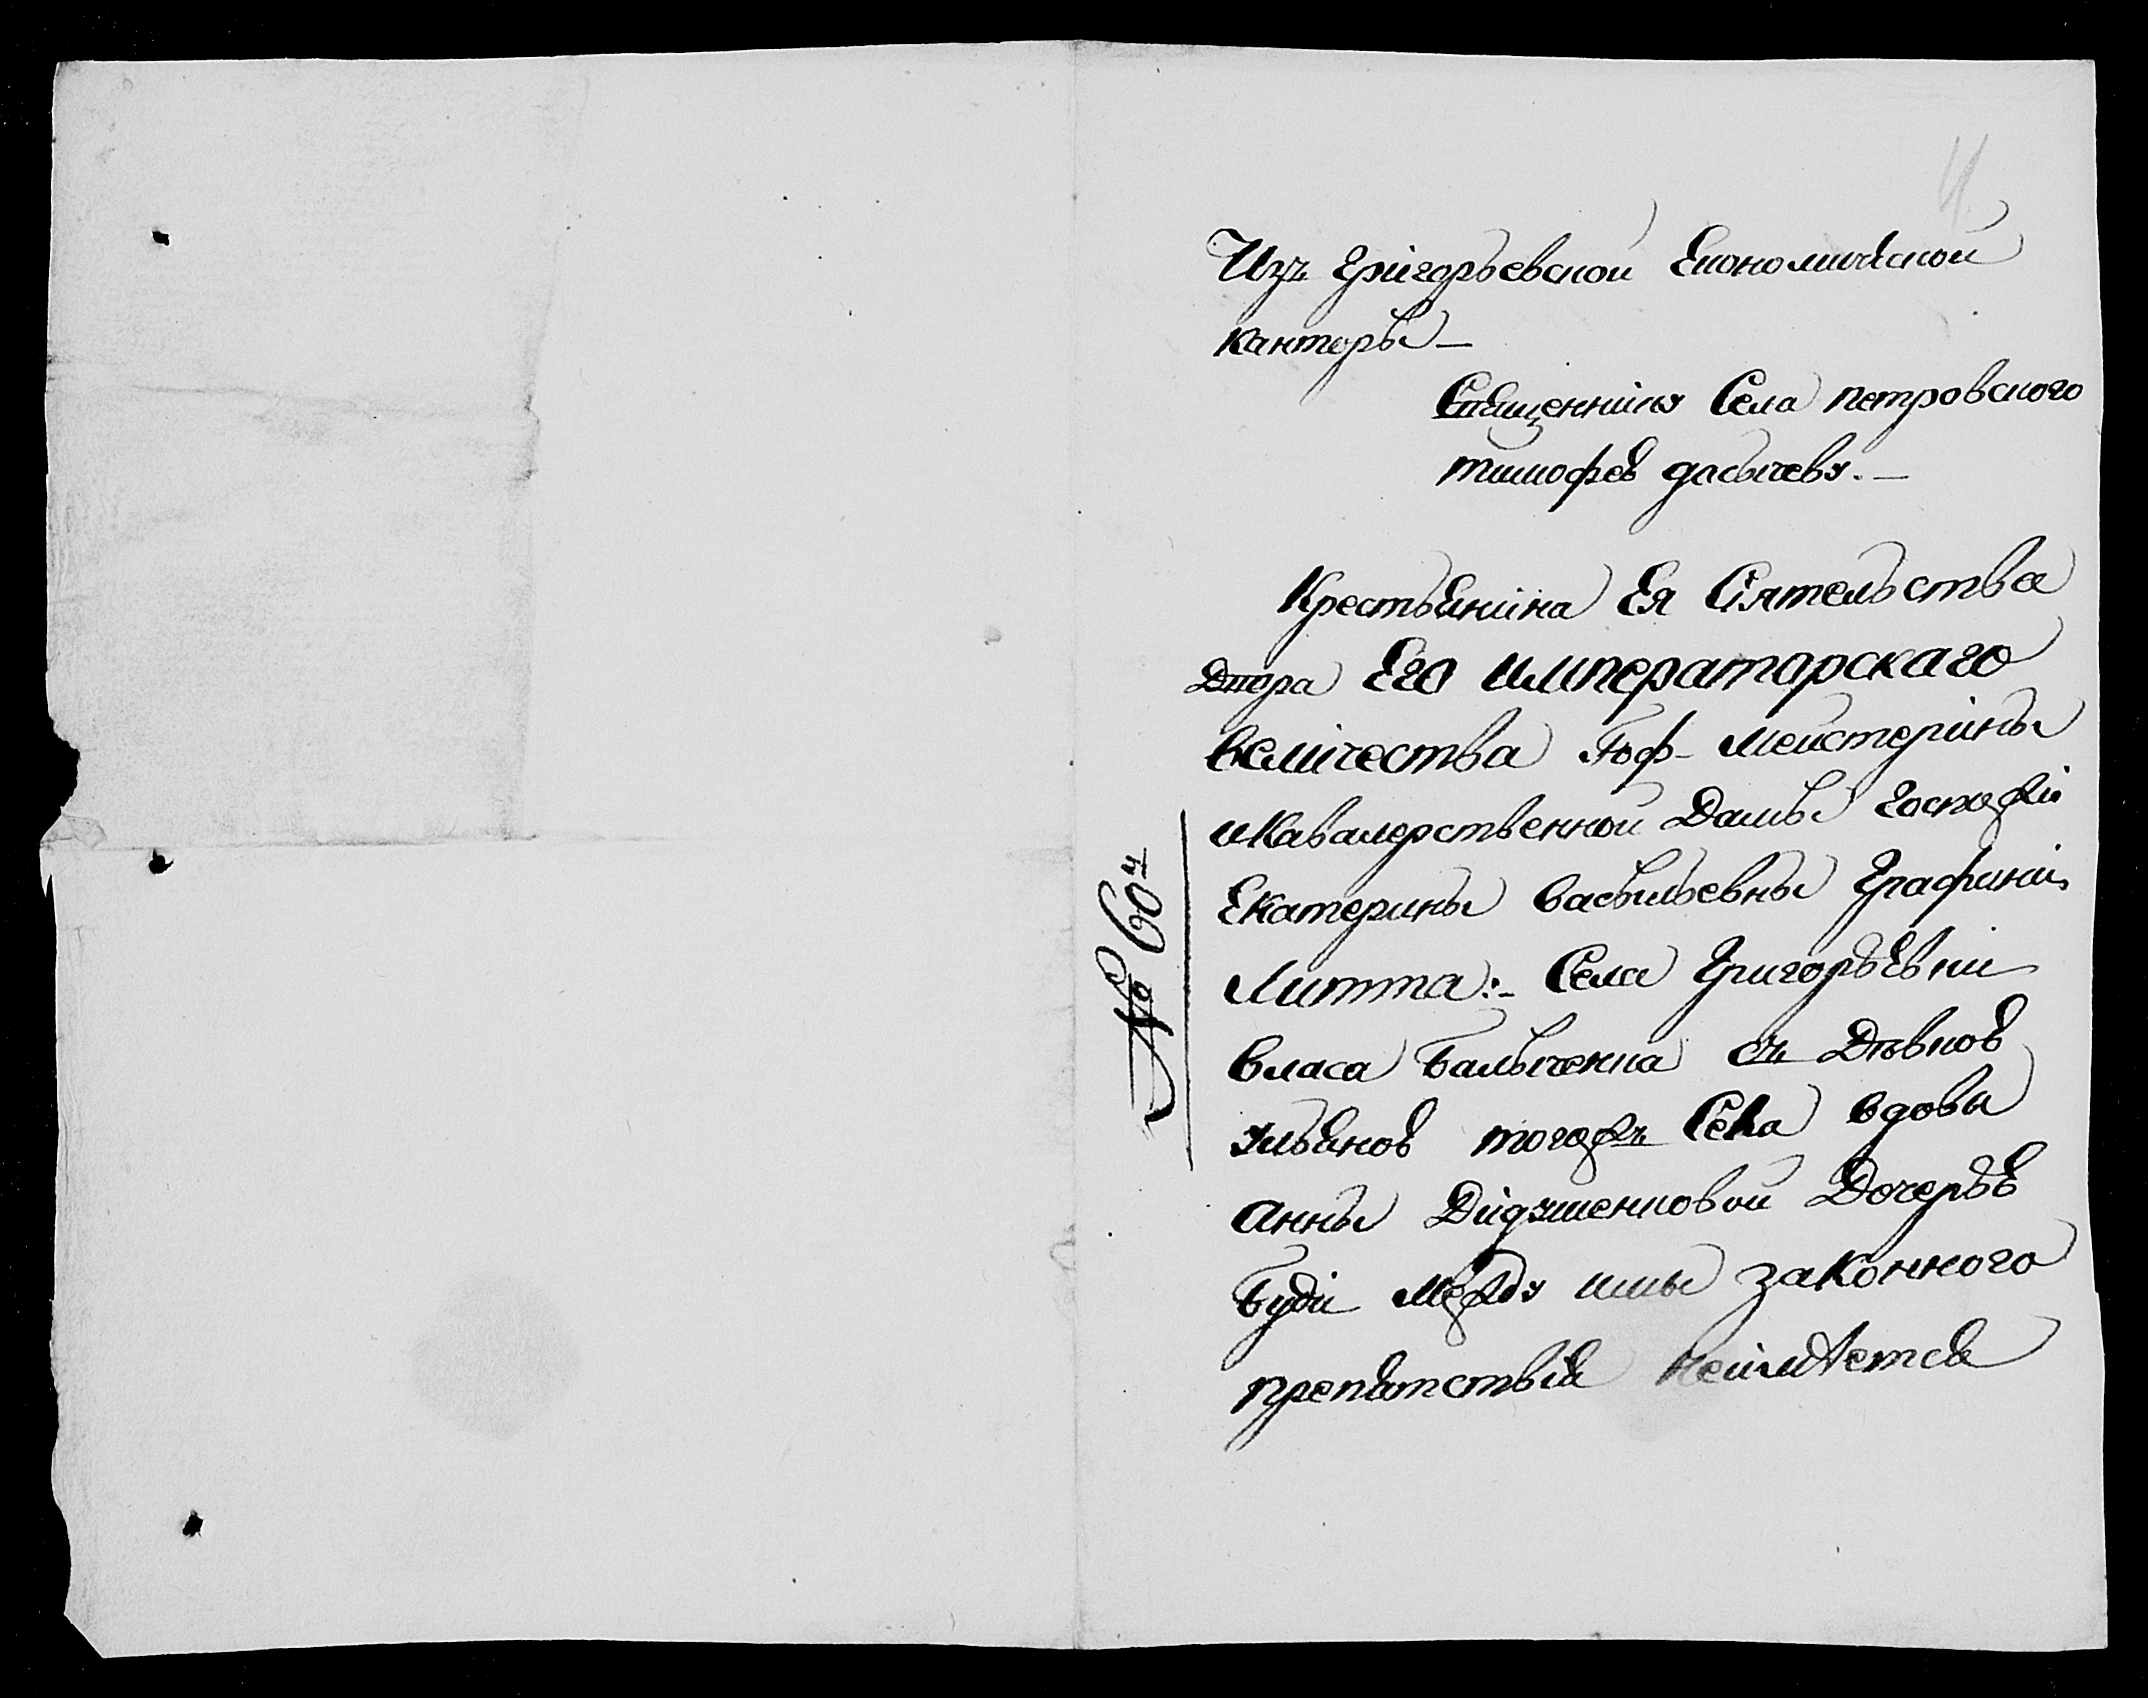 Изъ Григорьевской Економической
канторы —
Священнику Села петровского
тимофею досычеву. —
Крестьянина Ея Сиятельства
Двора Его императорскаго
величества Гоф-мейстерины
икавалерственной Дамы госпожи
Екатерины васыльевны Графини
Литта:- Села Григорьевки
власа Балыченка съ Девкою
ульяною тогожъ Села вдовы
анны Дидушенковой Дочерью
буди между имы законного
препятствия неимеетса
№ 60й